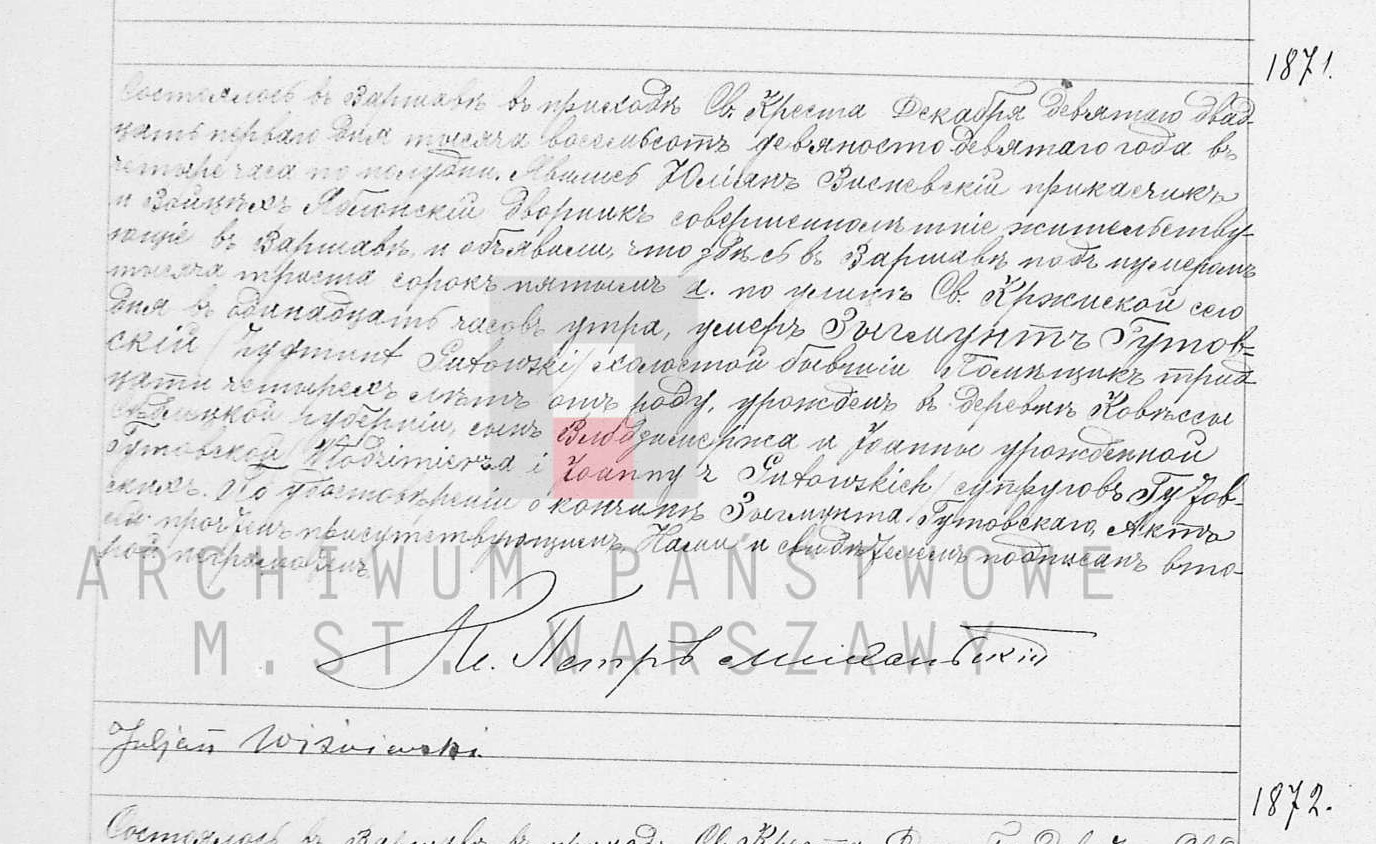 1871.
Состоялось въ Варшавѣ въ приходѣ Св. Креста Декабря девятаго двад-
цать перваго дня тысяча восемьсотъ девяносто девятаго года въ
четыре часа по полудни. Явились Юліянъ Висневскій прикасчикъ
и Войцѣхъ Яблонскій дворникъ совершеннолѣтніе жительству-
ющіе въ Варшавѣ, и объявили, что здѣсь въ Варшавѣ подъ нумеромъ
тысяча триста сорокъ пятымъ а. по улицѣ Св. Кржиской сего
дня въ одинадцать часовъ утра, умеръ Зыгмунтъ Гутов-
скій /Zygmunt Gutowski/ холостой бывшій Помѣщикъ трид
цати четырехъ лѣтъ отъ роду, урожденъ въ деревнѣ Ковѣссы
Сѣдлецкой губерніи, сынъ Влодзимержа и Іоанны урожденной
Гутовской /Włodzimierza i Joanny z Gutowskich/ супруговъ Гутов-
скихъ. По удостовѣреніи о кончинѣ Зыгмунта Гутовскаго, Актъ
сей прочтенъ присутствующимъ Нами и свидѣтелемъ подписанъ вто-
рой неграмотенъ.
Кс. Петръ
Juljan Wiśniewski.
1872.
Состоялось въ Варшавѣ въ приходѣ Св. Креста
ARCHIWUM PAŃSTWOWE
M.ST. WARSZAWY